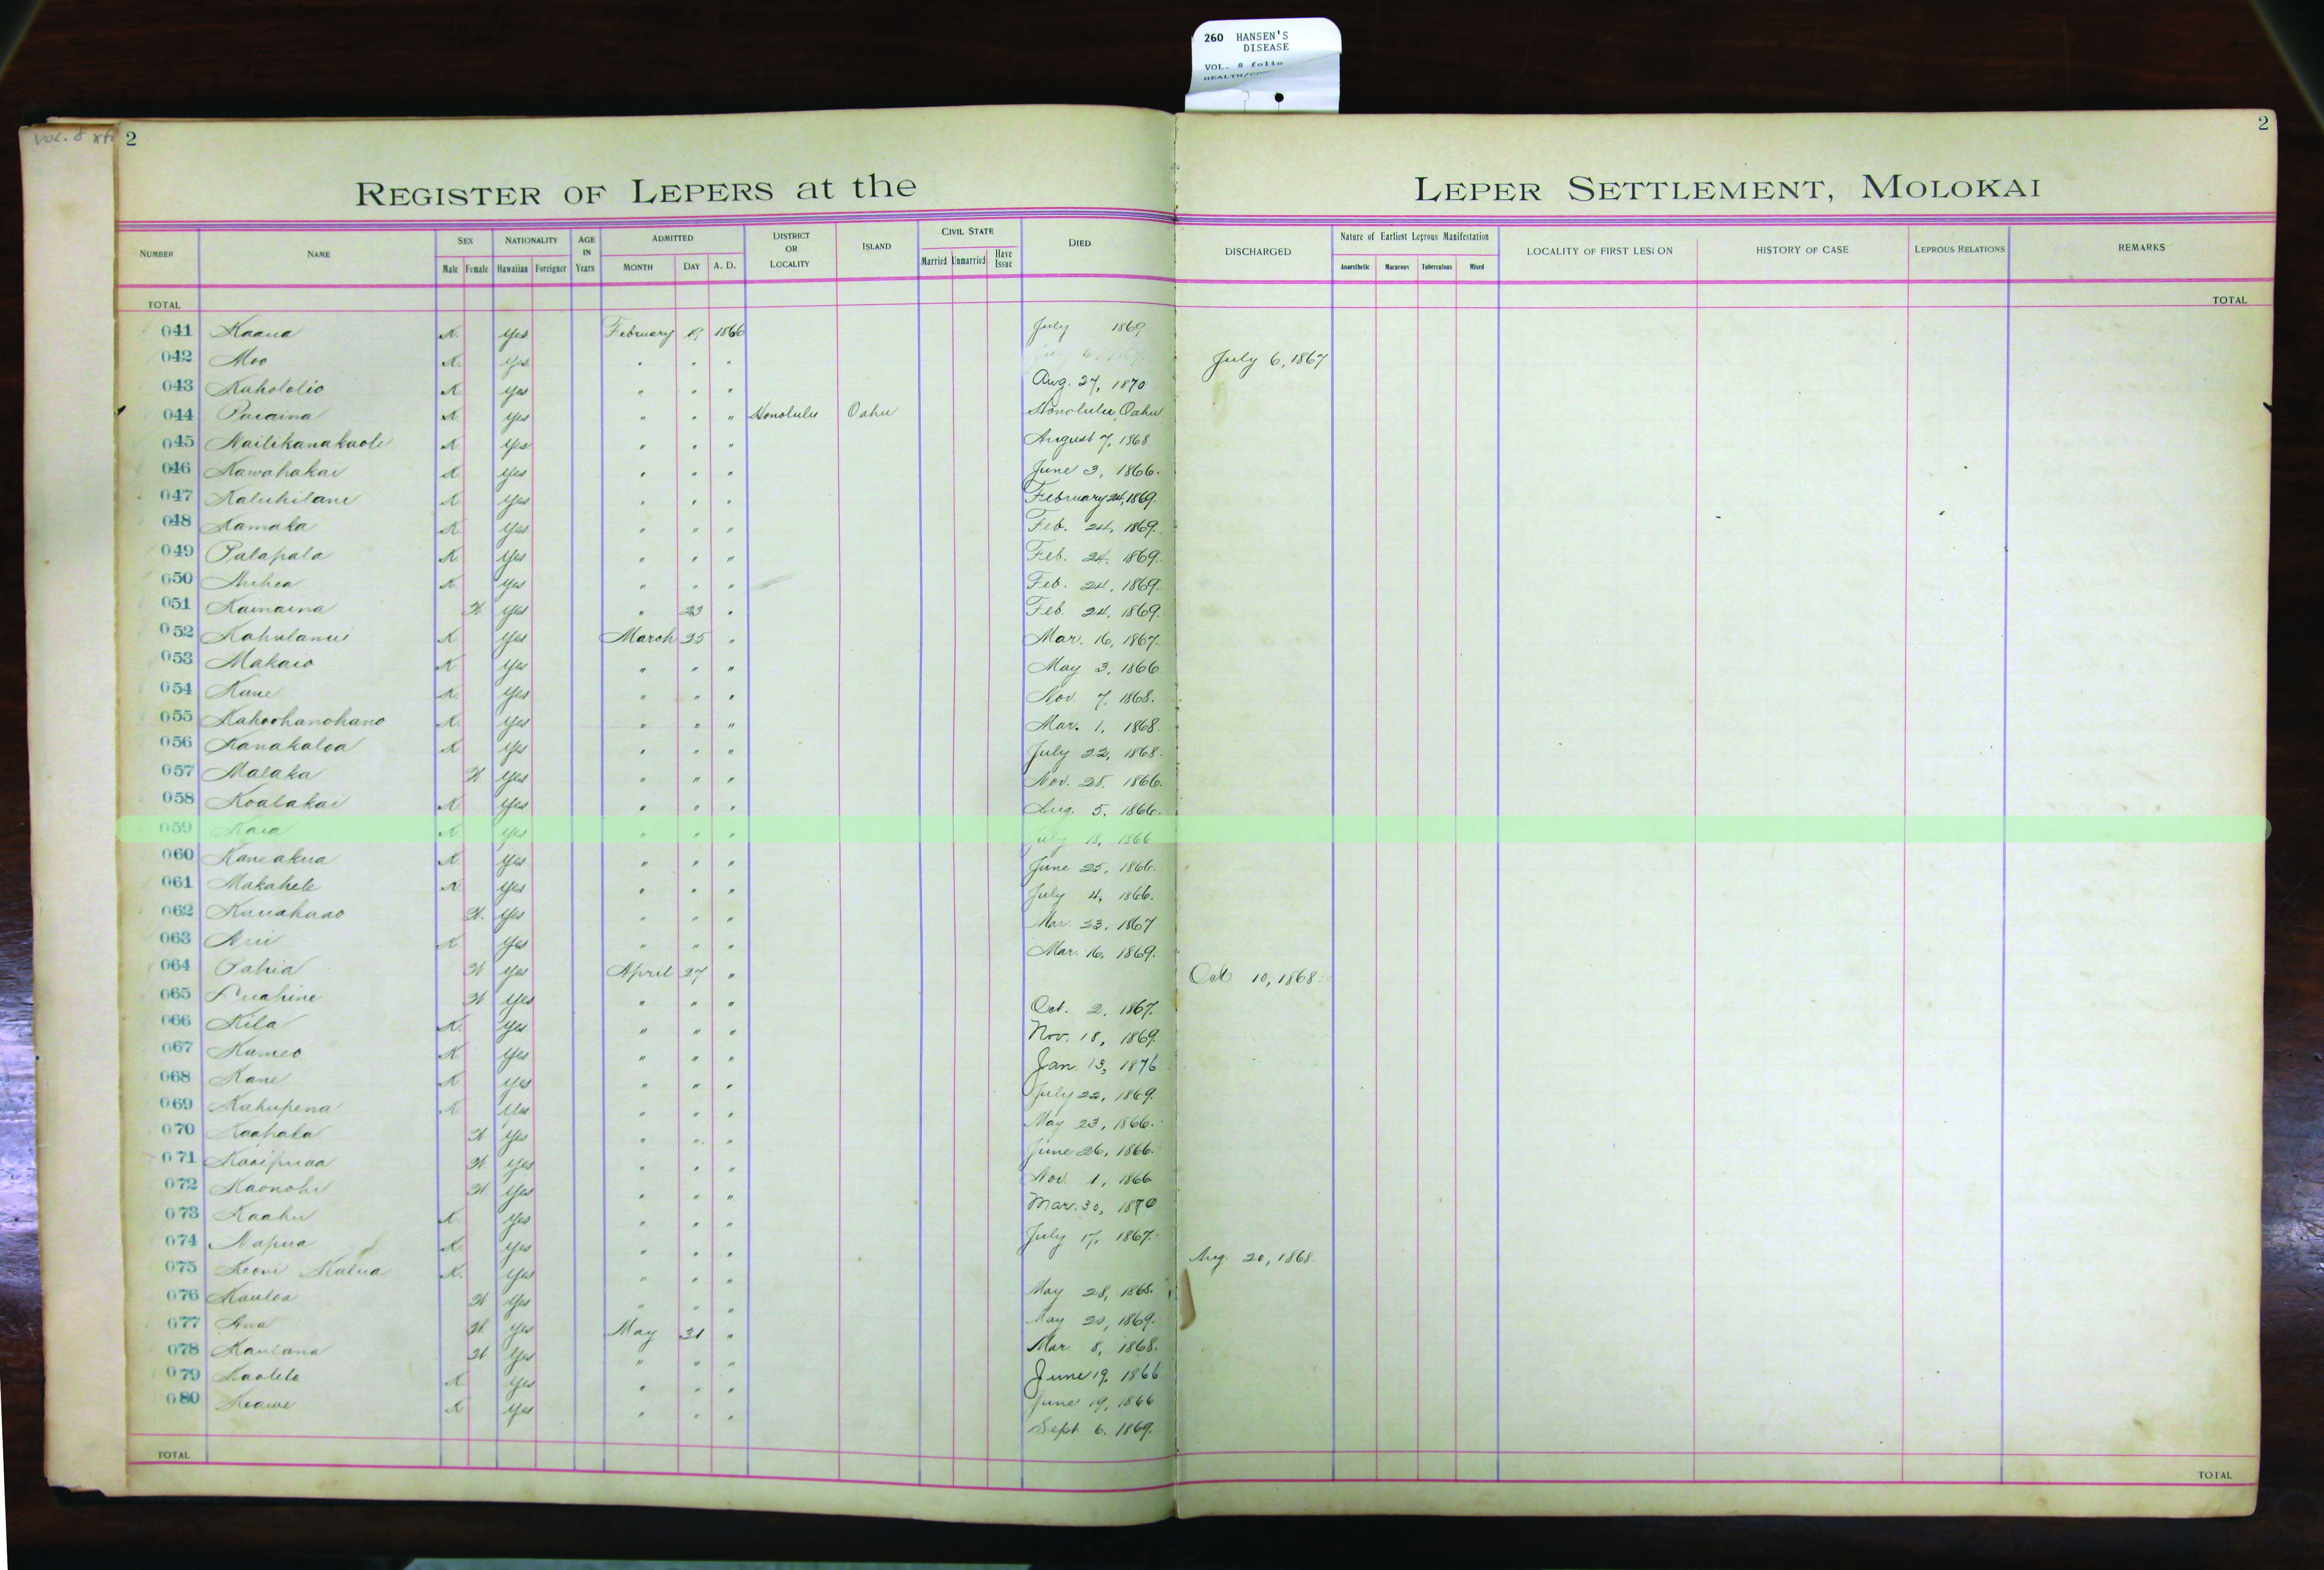 260 HANSEN'S
DISEASE
VOL. 8 folio
Vol. 8
2
2
REGISTER OF LEPERS at the LEPER SETTLEMENT, MOLOKAI
NUMBER NAME SEX NATIONALITY AGE IN Years ADMITTED DISTRICT OR LOCALITY ISLAND CIVIL STATE DIED DISCHARGED Nature of Earliest Leprous Manifestation LOCALITY OF FIRST LESION HISTORY OF CASE LEPROUS RELATIONS REMARKS
Male Female Hawaiian Foreigner MONTH DAY A. D. Married Unmarried Have Issue Anaesthetic Macurous Tuberculous Mixed
TOTAL TOTAL
041 Kaaua K. Yes February 19 1866 July 1869
042 Moo K. Yes " " " July 6, 1867
043 Kahololio K Yes " " " Aug. 27, 1870
044 K Yes " " " Honolulu Oahu Honolulu, Oahu
045 Nailikanakaole K Yes " " " August 7, 1868
046 Kawahakai K Yes " " " June 3, 1866.
047 Kaluhilani K Yes " " " February 24, 1869.
048 Kamaka K Yes " " " Feb. 24, 1869.
049 Palapala K. Yes " " " Feb. 24, 1869.
050 K. Yes " " " Feb. 24, 1869.
051 Kamaina W Yes " 23 " Feb. 24, 1869.
052 Kahulanui K Yes March 25 " Mar. 16, 1867.
053 Makaio K Yes " " " May 3, 1866
054 Kane K. Yes " " " Nov. 7, 1868.
055 Kahoohanohano K. Yes " " " Mar. 1, 1868.
056 Kanakaloa K Yes " " " July 22, 1868.
057 Malaka W Yes " " " Nov. 28, 1866.
058 Koalakai K Yes " " " Aug. 5, 1866.
059 Kaia K Yes " " " July 18, 1866
060 Kaneakua K Yes " " " June 25, 1866.
061 Makahele K Yes " " " July 4, 1866.
062 Kauahaao W. Yes " " " Mar. 23, 1867
063 K Yes " " " Mar. 16, 1869.
064 Pahia W Yes April 27 " Oct 10, 1868.
065 Puahine W Yes " " " Oct. 2, 1867.
066 Kila K. Yes " " " Nov. 18, 1869.
067 Kameo K Yes " " " Jan. 13, 1876
068 Kane K Yes " " " July 22, 1869.
069 Kahupena K Yes " " " May 23, 1866.
070 Kaapala W Yes " " " June 26, 1866.
071 Kaaipuaa W. Yes " " " Nov. 1, 1866
072 Kaonohi W Yes " " " Mar. 30, 1870
073 Kaahu K. Yes " " " July 17, 1867.
074 Napua K Yes " " " Aug. 20, 1868.
075 Keoni Kalua K. Yes " " " May 28, 1868.
076 Kauloa W Yes " " " May 20, 1869.
077 Ana W. Yes May 31 " Mar. 8, 1868.
078 Kaulana W Yes " " " June 19, 1866
079 Kaolelo K Yes " " " June 19, 1866
080 Keawe K Yes " " " Sept. 6, 1869.
TOTAL TOTAL